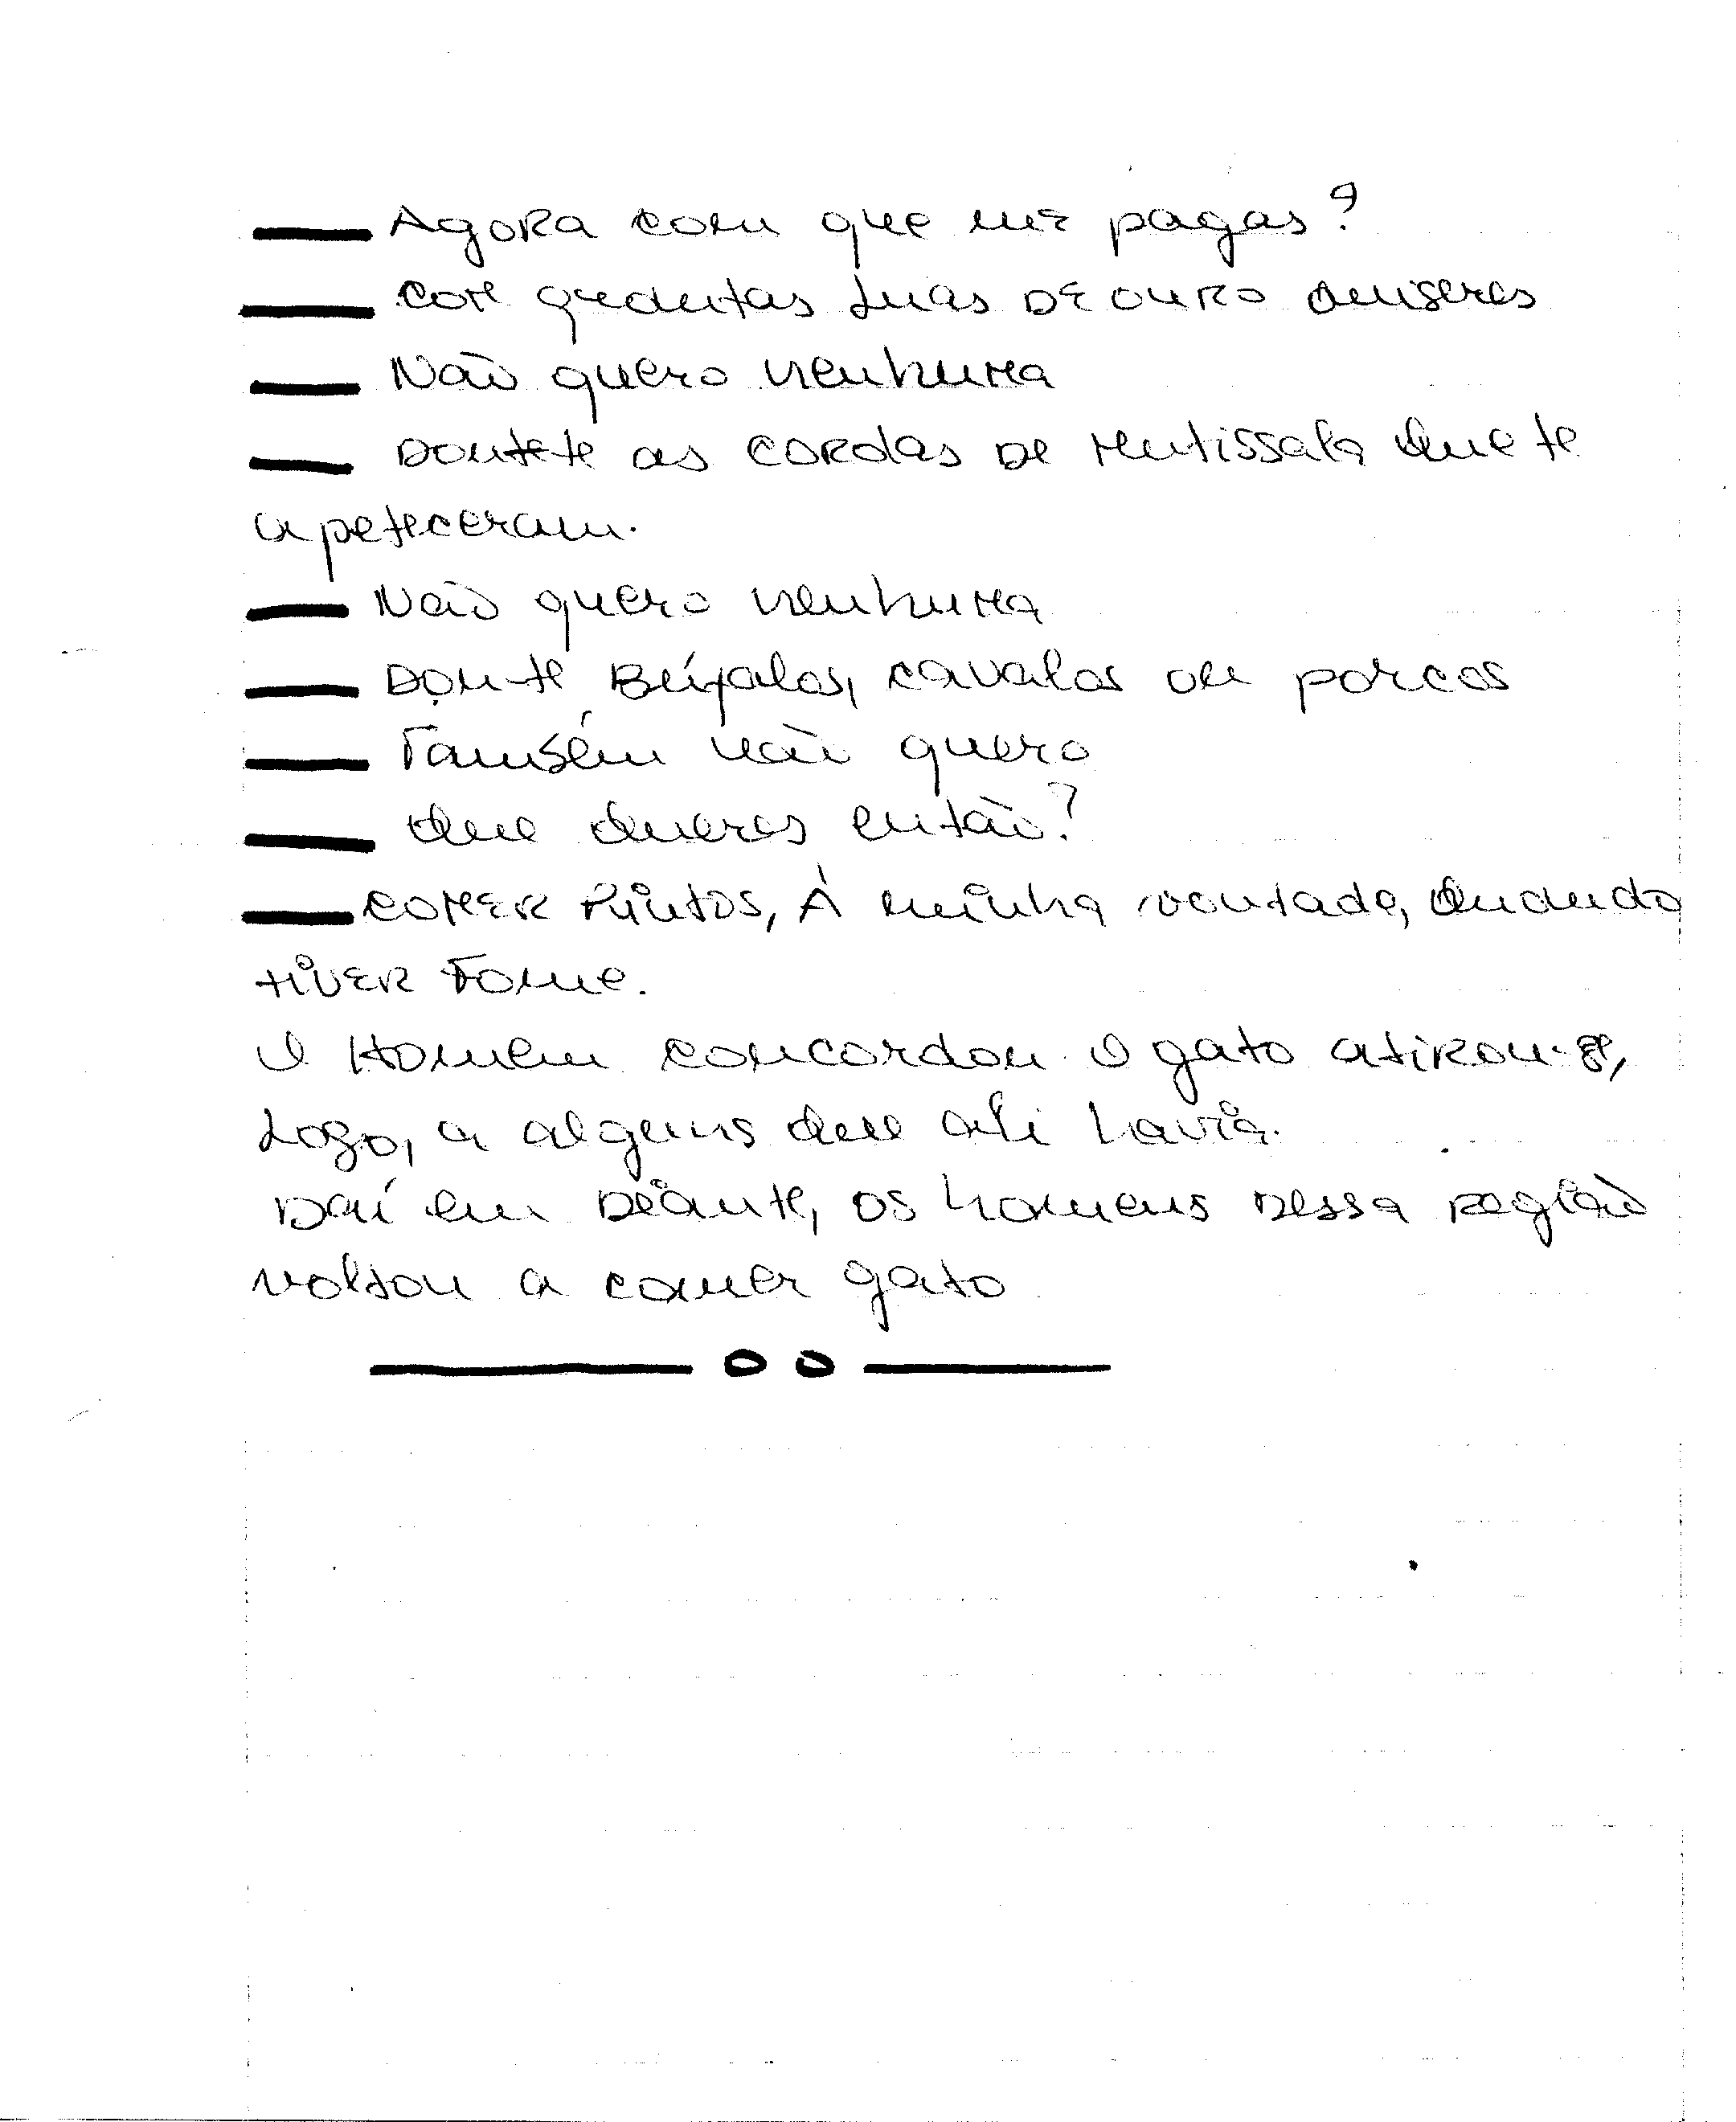 — Agora com que me pagas?
— Com quantas luas de ouro quiseres
— Não quero nenhuma
— Dou-te as cordas de mutissala que te
apeteceram.
— Não quero nenhuma
— Dou-te Búfalos, cavalos ou porcos
— Também não quero
— Que queres então?
— Comer Pintos, À minha vontade, quando
tiver Fome.
O Homem concordou O gato atirou-se,
Logo, a alguns que ali havia.
Daí em Deante, os homens dessa região
voltou a comer gato